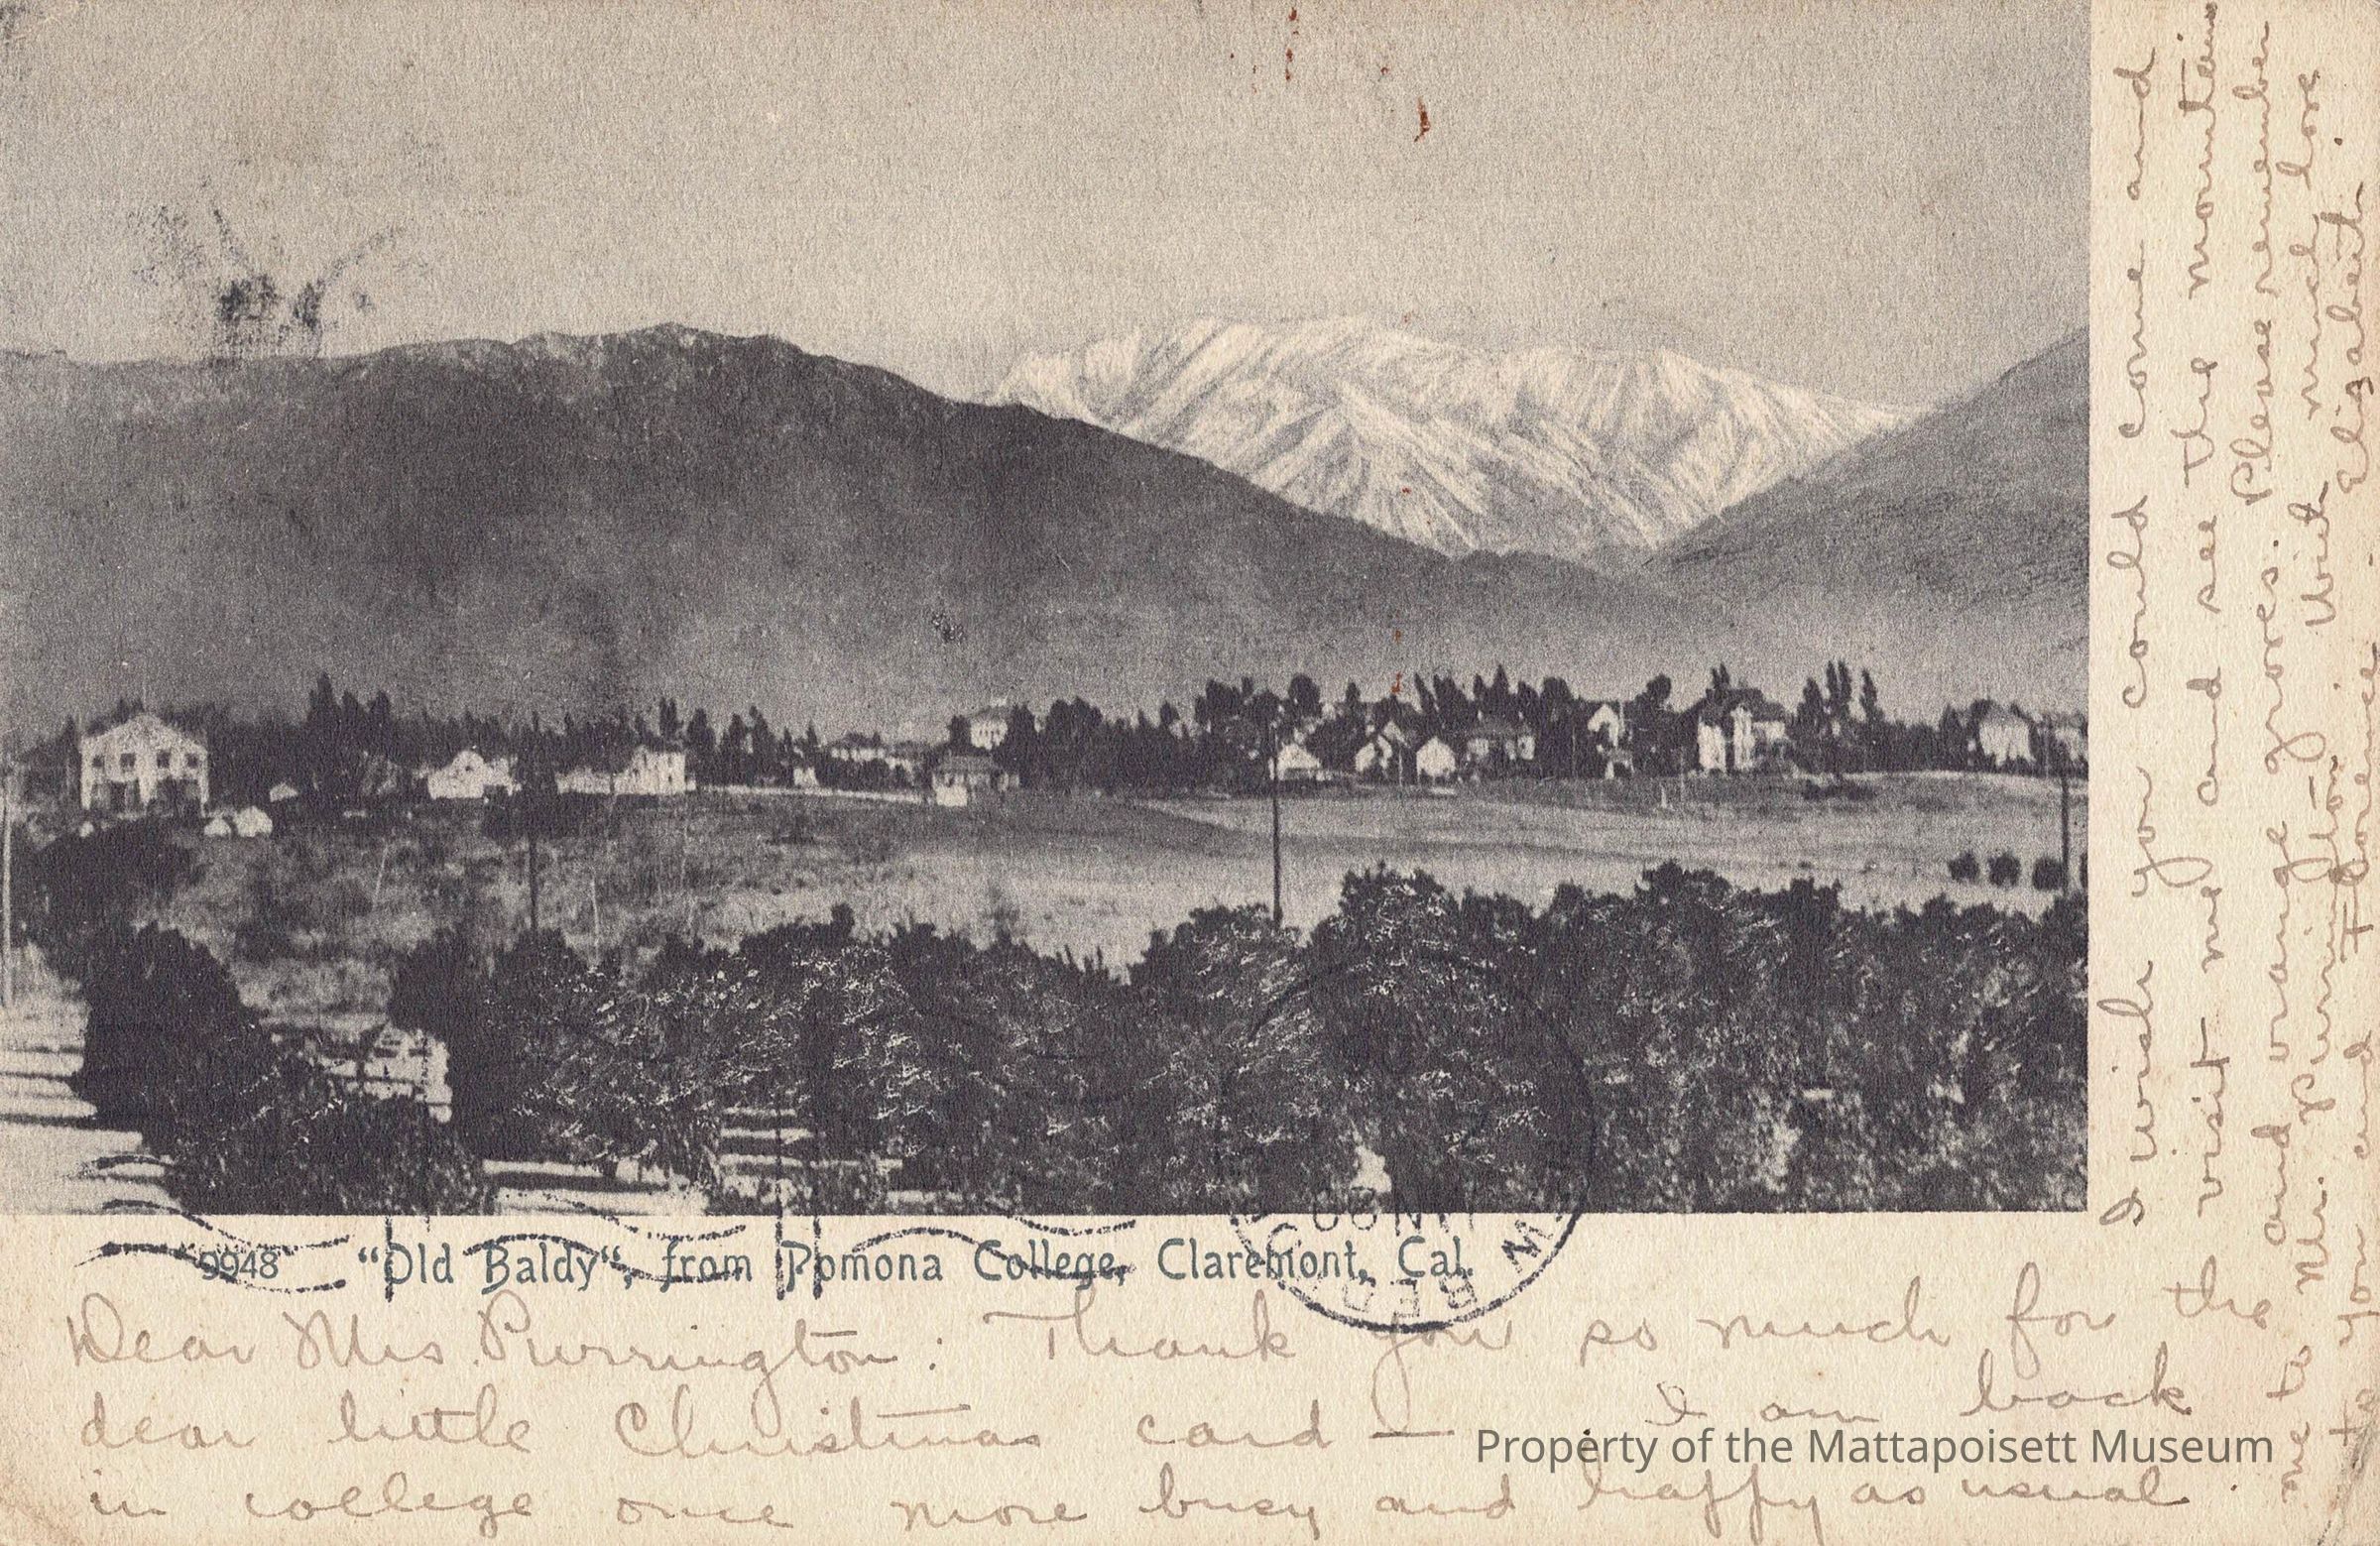 9948 "Old Baldy", from Pomona College, Claremont, Cal.
Dear Mrs. Purrington: Thank you so much for the
dear little Christmas card — I am back
in college once more busy and happy as usual.
I wish you could come and
visit me and see the mountains
and orange groves. Please remember
me to Mr. Purrington. With much love
to you and Florence. Elizabeth.
Property of the Mattapoisett Museum